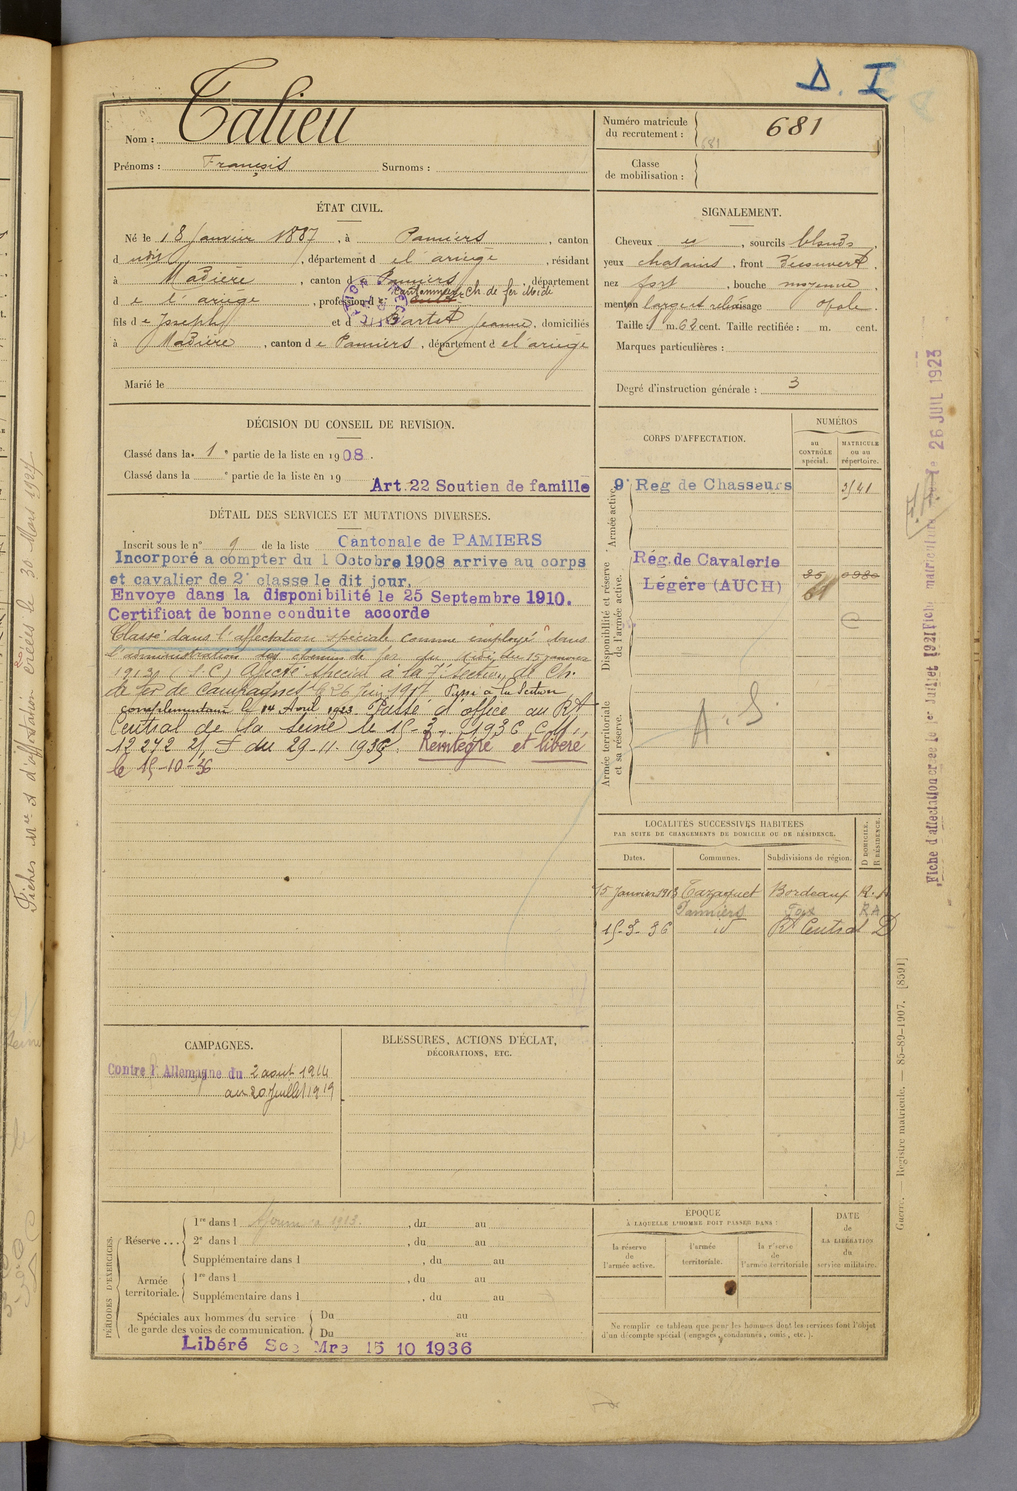 D. I
Nom : Talieu
Prénoms : François Surnoms :
Numéro matricule
du recrutement : 681
681
Classe
de mobilisation :
ÉTAT CIVIL.
Né le 18 Janvier 1887, à Pamiers, canton
d udit, département d e l'ariège, résidant
à Madière, canton d e Pamiers, département
d e l'ariège, profession d e cantonnier ch de fer Midi
fils d e Joseph et d e Bartet Jeanne, domiciliés
à Madière, canton d e Pamiers, département d e l'ariège
Marié le
SIGNALEMENT.
Cheveux et, sourcils blonds,
yeux chatains, front découvert,
nez fort, bouche moyenne,
menton large et, visage ovale.
Taille 1 m. 62 cent. Taille rectifiée : m. cent.
Marques particulières :
Degré d'instruction générale : 3
DÉCISION DU CONSEIL DE REVISION.
Classé dans la 1 e partie de la liste en 1908.
Classé dans la e partie de la liste en 19
Art. 22 Soutien de famille
DÉTAIL DES SERVICES ET MUTATIONS DIVERSES.
Inscrit sous le n° 9 de la liste Cantonale de PAMIERS
Incorporé a compter du 1 Octobre 1908 arrive au corps
et cavalier de 2e classe le dit jour.
Envoye dans la disponibilité le 25 Septembre 1910.
Certificat de bonne conduite accorde
Classé dans l'affectation spéciale comme employé dans
l'administration des chemins de fer du midi du 15 janvier
1913 (S.C) Affecté spécial à la 7e Section de Ch.
de fer de Campagne le 26 Juin 1917 Passé à la Section
complémentaire le 14 Avril 1923 Passé d'office au Rt
Central de la Seine le 15-3-1936
12272 du 29-11-1935. Réintégré et libéré
le 15-10-36
CORPS D'AFFECTATION.
NUMÉROS
au
CONTRÔLE
spécial.
MATRICULE
ou au
répertoire.
Armée active.
9e Reg de Chasseurs 3141
Disponibilité et réserve
de l'armée active.
Rég. de Cavalerie
Légère (AUCH)
Armée territoriale
et sa réserve.
A. S.
LOCALITÉS SUCCESSIVES HABITÉES
PAR SUITE DE CHANGEMENTS DE DOMICILE OU DE RÉSIDENCE.
Dates. Communes. Subdivisions de région. D DOMICILE. R RÉSIDENCE.
15 Janvier 1913 Bordeaux R.A
Pamiers Foix RA
15-3-36 id Rt Central D
CAMPAGNES.
Contre l'Allemagne du 2 aout 1914
au 20 Juillet 1919
BLESSURES, ACTIONS D'ÉCLAT,
DÉCORATIONS, ETC.
PÉRIODES D'EXERCICES.
Réserve ...
1re dans l Ajourné à 1913, du au
2e dans l, du au
Supplémentaire dans l, du au
Armée
territoriale.
1re dans l, du au
Supplémentaire dans l, du au
Spéciales aux hommes du service
de garde des voies de communication.
Du au
Du au
Libéré Sce Mre 15 10 1936
ÉPOQUE
À LAQUELLE L'HOMME DOIT PASSER DANS :
la réserve
de
l'armée active.
l'armée
territoriale.
la réserve
de
l'armée territoriale.
DATE
de
LA LIBÉRATION
du
service militaire.
Ne remplir ce tableau que pour les hommes dont les services font l'objet
d'un décompte spécial (engagés, condamnés, omis, etc.).
Guerre. — Registre matricule. — 85-89-1907. [8591]
Fiche d'affectation créée le 1er Juillet 1921
Fiche matricule 26 JUIL 1923
Fiches d'affectation créées le 30 Mars 1924